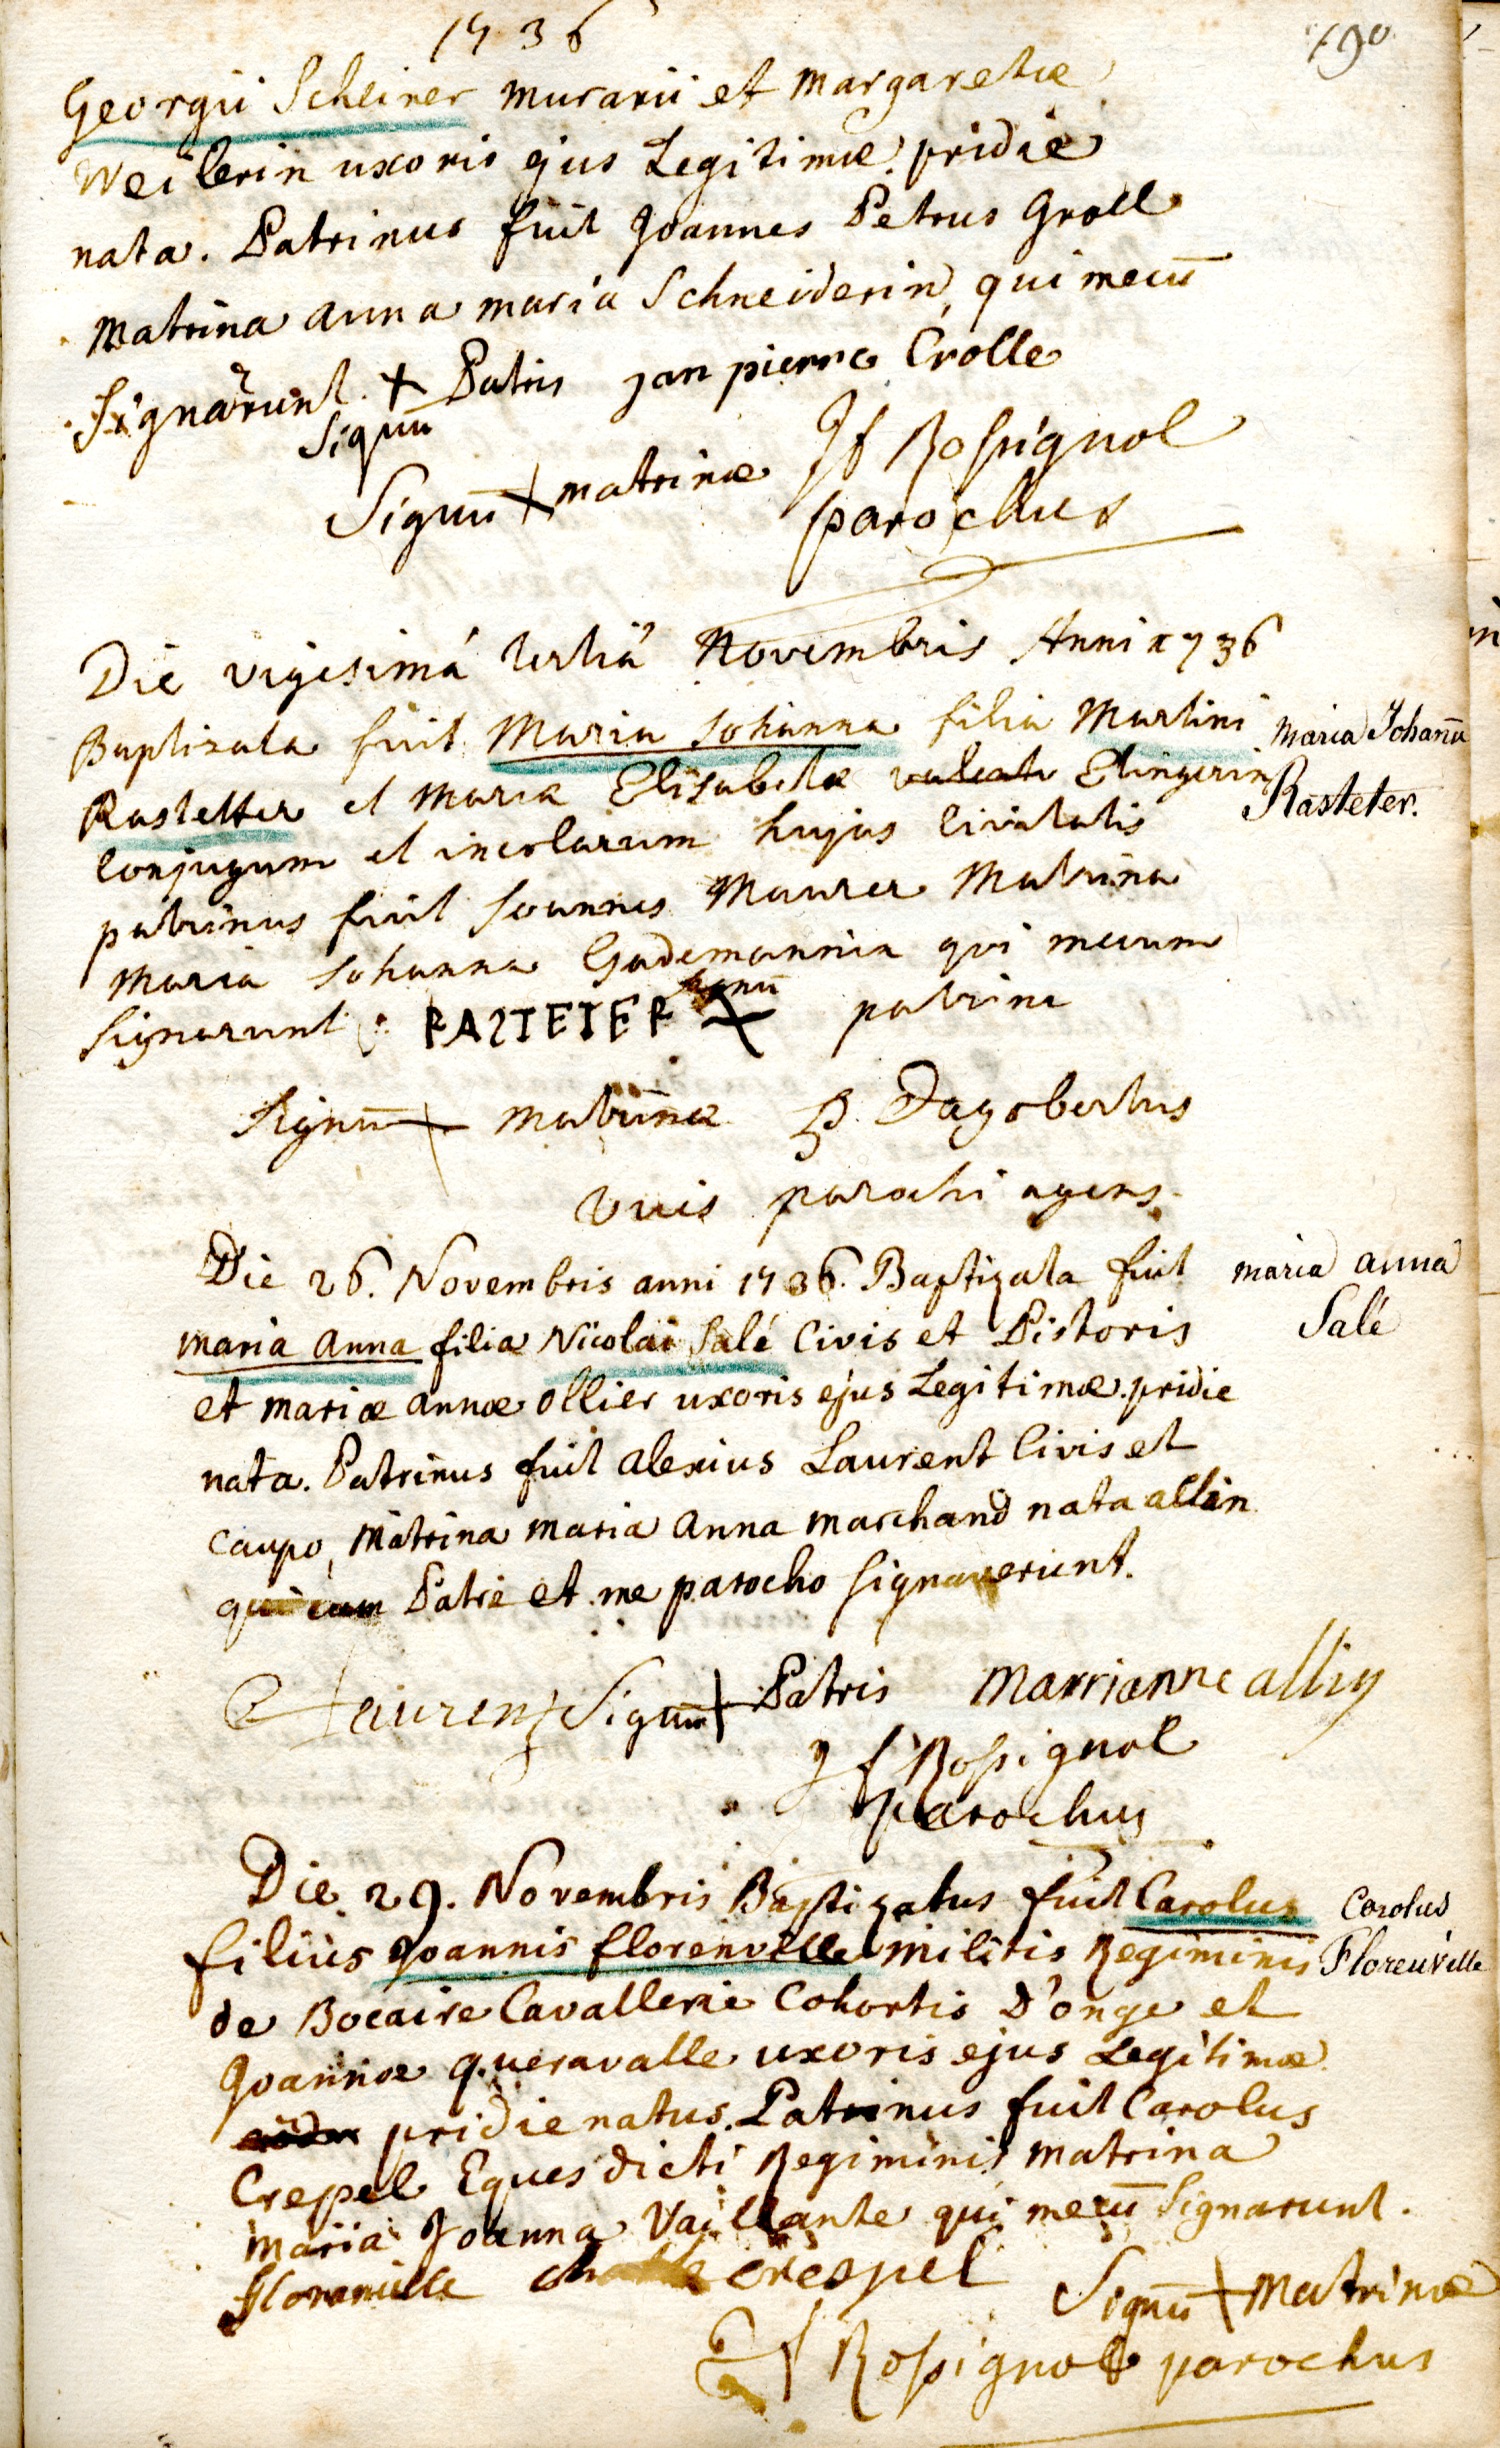 1736
190
Georgii Scheiner murarii et Margaretæ
Weilerin uxoris ejus Legitimæ pridie
nata. Patrinus fuit Joannes Petrus Groll
Matrina anna maria Schneiderin, qui mecū
Signarunt. + Patris jan pierre Crolle
Signū
Signū + matrinæ Jf Rossignol
parochus
Die vigesimá tertiâ Novembris Anni 1736
Baptizata fuit Maria Johanna filia Martini
Rastetter et Mariæ Elisabethæ Etingerin
Conjugum et incolarum hujus Civitatis
patrinus fuit Joannes Maurer Matrina
Maria Johanna Gademannin qui mecum
Signarunt RASTETER Signū + patrini
Signū + matrinæ P. Dagobertus
vices parochi agens.
maria Johaña
Rasteter.
Die 26. Novembris anni 1736. Baptizata fuit
maria Anna filia Nicolai Salé Civis et Pistoris
et mariæ annæ ollier uxoris ejus Legitimæ pridie
nata. Patrinus fuit alexius Laurent Civis et
Caupo, Matrina maria Anna marchand nata allin
qui cum Patre et me parocho signaverunt.
maria anna
Salé
Laurent Signū + Patris Marrianne allin
Jf Rossignol
parochus
Die 29. Novembris Baptizatus fuit Carolus
filius Joannis florenville militis Regiminis
de Bocaire Cavallerie Cohortis D'onge et
Joannæ queravalle uxoris ejus Legitimæ
pridie natus. Patrinus fuit Carolus
Crepel Eques dicti Regiminis matrina
maria Joanna Vaillante qui mecū signarunt.
Carolus
Florenville
Florenville crespel Signū + Matrinæ
Jf Rossignol parochus